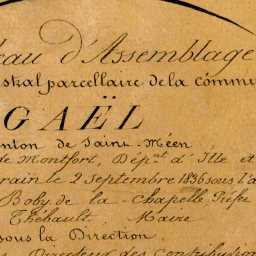 eau d'Assemblage
stral parcellaire de la commu
GAËL
nton de Saint-Méen
de Montfort, Dép.nt d'Ille et
rain le 2 septembre 1836 sous l'a
Boby de la Chapelle Préfe
Thébault Maire
sous la Direction
Directeur des Contribution